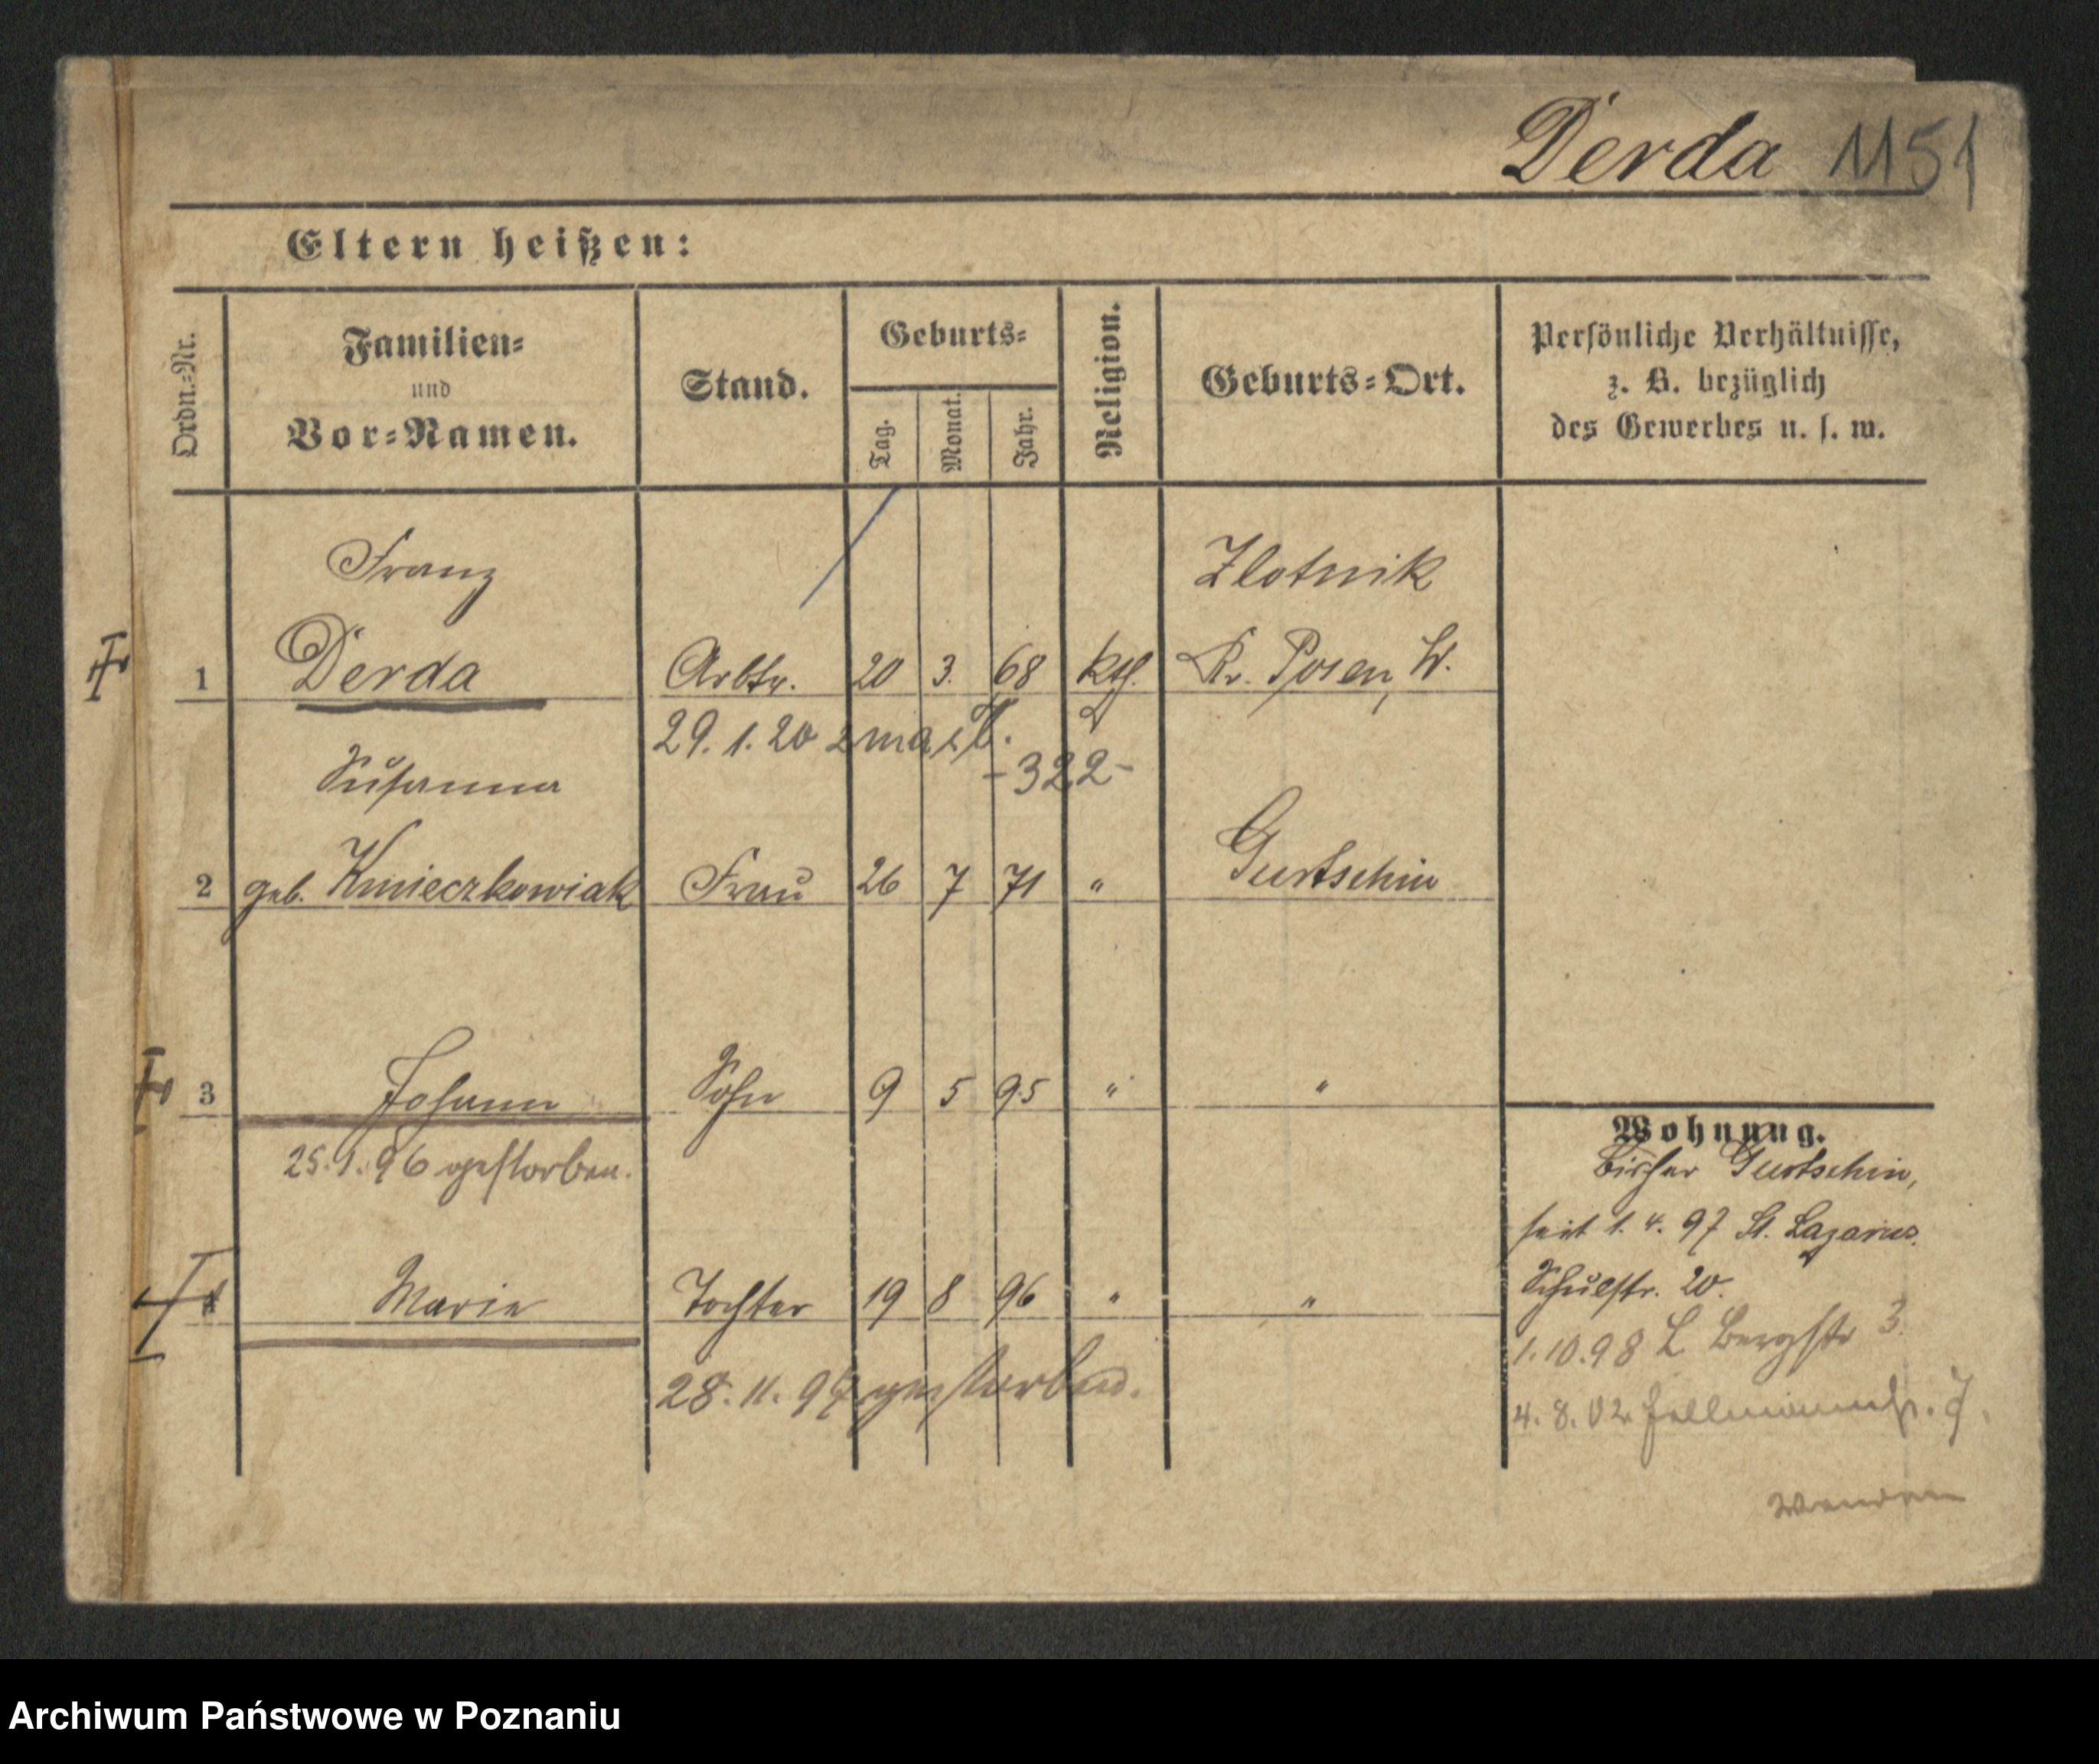 Derda 1151
Eltern heißen:
Ordn.-Nr.
Familien-
und
Vor-Namen.
Stand.
Geburts-
Tag.
Monat.
Jahr.
Religion.
Geburts-Ort.
Persönliche Verhältnisse,
z. B. bezüglich
des Gewerbes u. s. w.
Franz
Zlotnik
1 Derda Arbtr. 20 3. 68 kth. Kr. Posen, W.
29. 1. 20 zmarł.
-322-
Susanna
2 geb. Kmieczkowiak Frau 26 7 71 " Gurtschin
3 Johann Sohn 9 5 95 " "
25. 1. 96 gestorben.
4 Marie Tochter 19 8 96 " "
28. 11. 97 gestorben.
Wohnung.
Bisher Gurtschin,
seit 1. 4. 97 St. Lazarus.
Schulstr. 20.
1. 10. 98 L Bergstr 3.
4. 8. 02
wenden
Archiwum Państwowe w Poznaniu